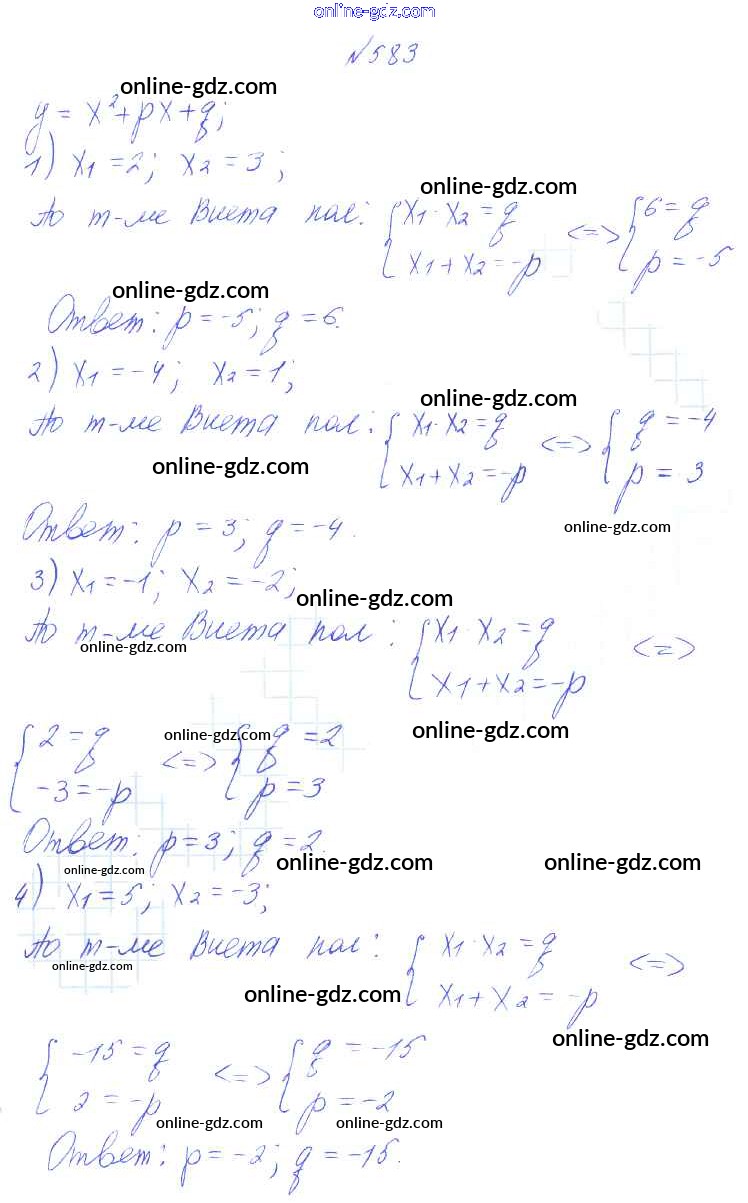 online-gdz.com
№583
online-gdz.com
y = x² + px + q;
1) x₁ = 2; x₂ = 3;
online-gdz.com
По т-ме Виета пол: { x₁ · x₂ = q <=> { 6 = q
x₁ + x₂ = -p p = -5
online-gdz.com
Ответ: p = -5; q = 6.
2) x₁ = -4; x₂ = 1;
online-gdz.com
По т-ме Виета пол: { x₁ · x₂ = q <=> { q = -4
x₁ + x₂ = -p p = 3
online-gdz.com
Ответ: p = 3; q = -4.
online-gdz.com
3) x₁ = -1; x₂ = -2;
online-gdz.com
По т-ме Виета пол: { x₁ · x₂ = q <=>
x₁ + x₂ = -p
online-gdz.com
{ 2 = q <=> { q = 2
-3 = -p p = 3
online-gdz.com
online-gdz.com
Ответ: p = 3; q = 2.
online-gdz.com
online-gdz.com
4) x₁ = 5; x₂ = -3;
online-gdz.com
По т-ме Виета пол: { x₁ · x₂ = q <=>
x₁ + x₂ = -p
online-gdz.com
online-gdz.com
online-gdz.com
{ -15 = q <=> { q = -15
2 = -p p = -2
online-gdz.com
online-gdz.com
Ответ: p = -2; q = -15.